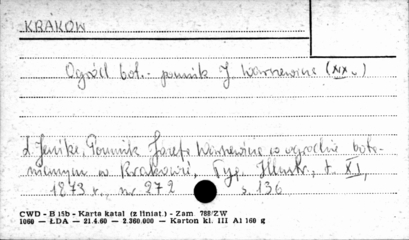 KRAKÓW
Ogród bot. - pomnik J. Warszewicza (XIX w.)
L. Jenike, Pomnik Józefa Warszewicza w ogrodzie bota-
nicznym w Krakowie, Tyg. Illustr., t. XI,
1873 r., nr 272 s. 136
CWD - B 15b - Karta katal. (z liniat.) - Zam. 788/ZW
1060 — ŁDA — 21.4.60 — 2.360.000 — Karton kl. III A1 160 g